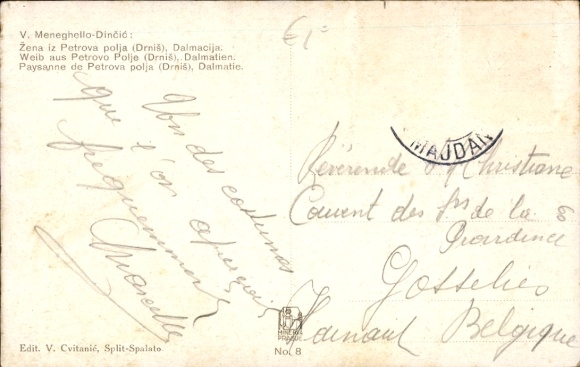 V. Meneghello-Dinčić:
Žena iz Petrova polja (Drniš), Dalmacija.
Weib aus Petrovo Polje (Drniš), Dalmatien.
Paysanne de Petrova polja (Drniš), Dalmatie.
£1=
Un des costumes
que l'on aperçoit
fréquemment
Marcelle
MAJDAN
Révérende Christiane
Couvent des Srs de la
Providence
Gosselies
Hainaut Belgique
MINERVA
PRAGUE
No. 8
Edit. V. Cvitanić, Split-Spalato.